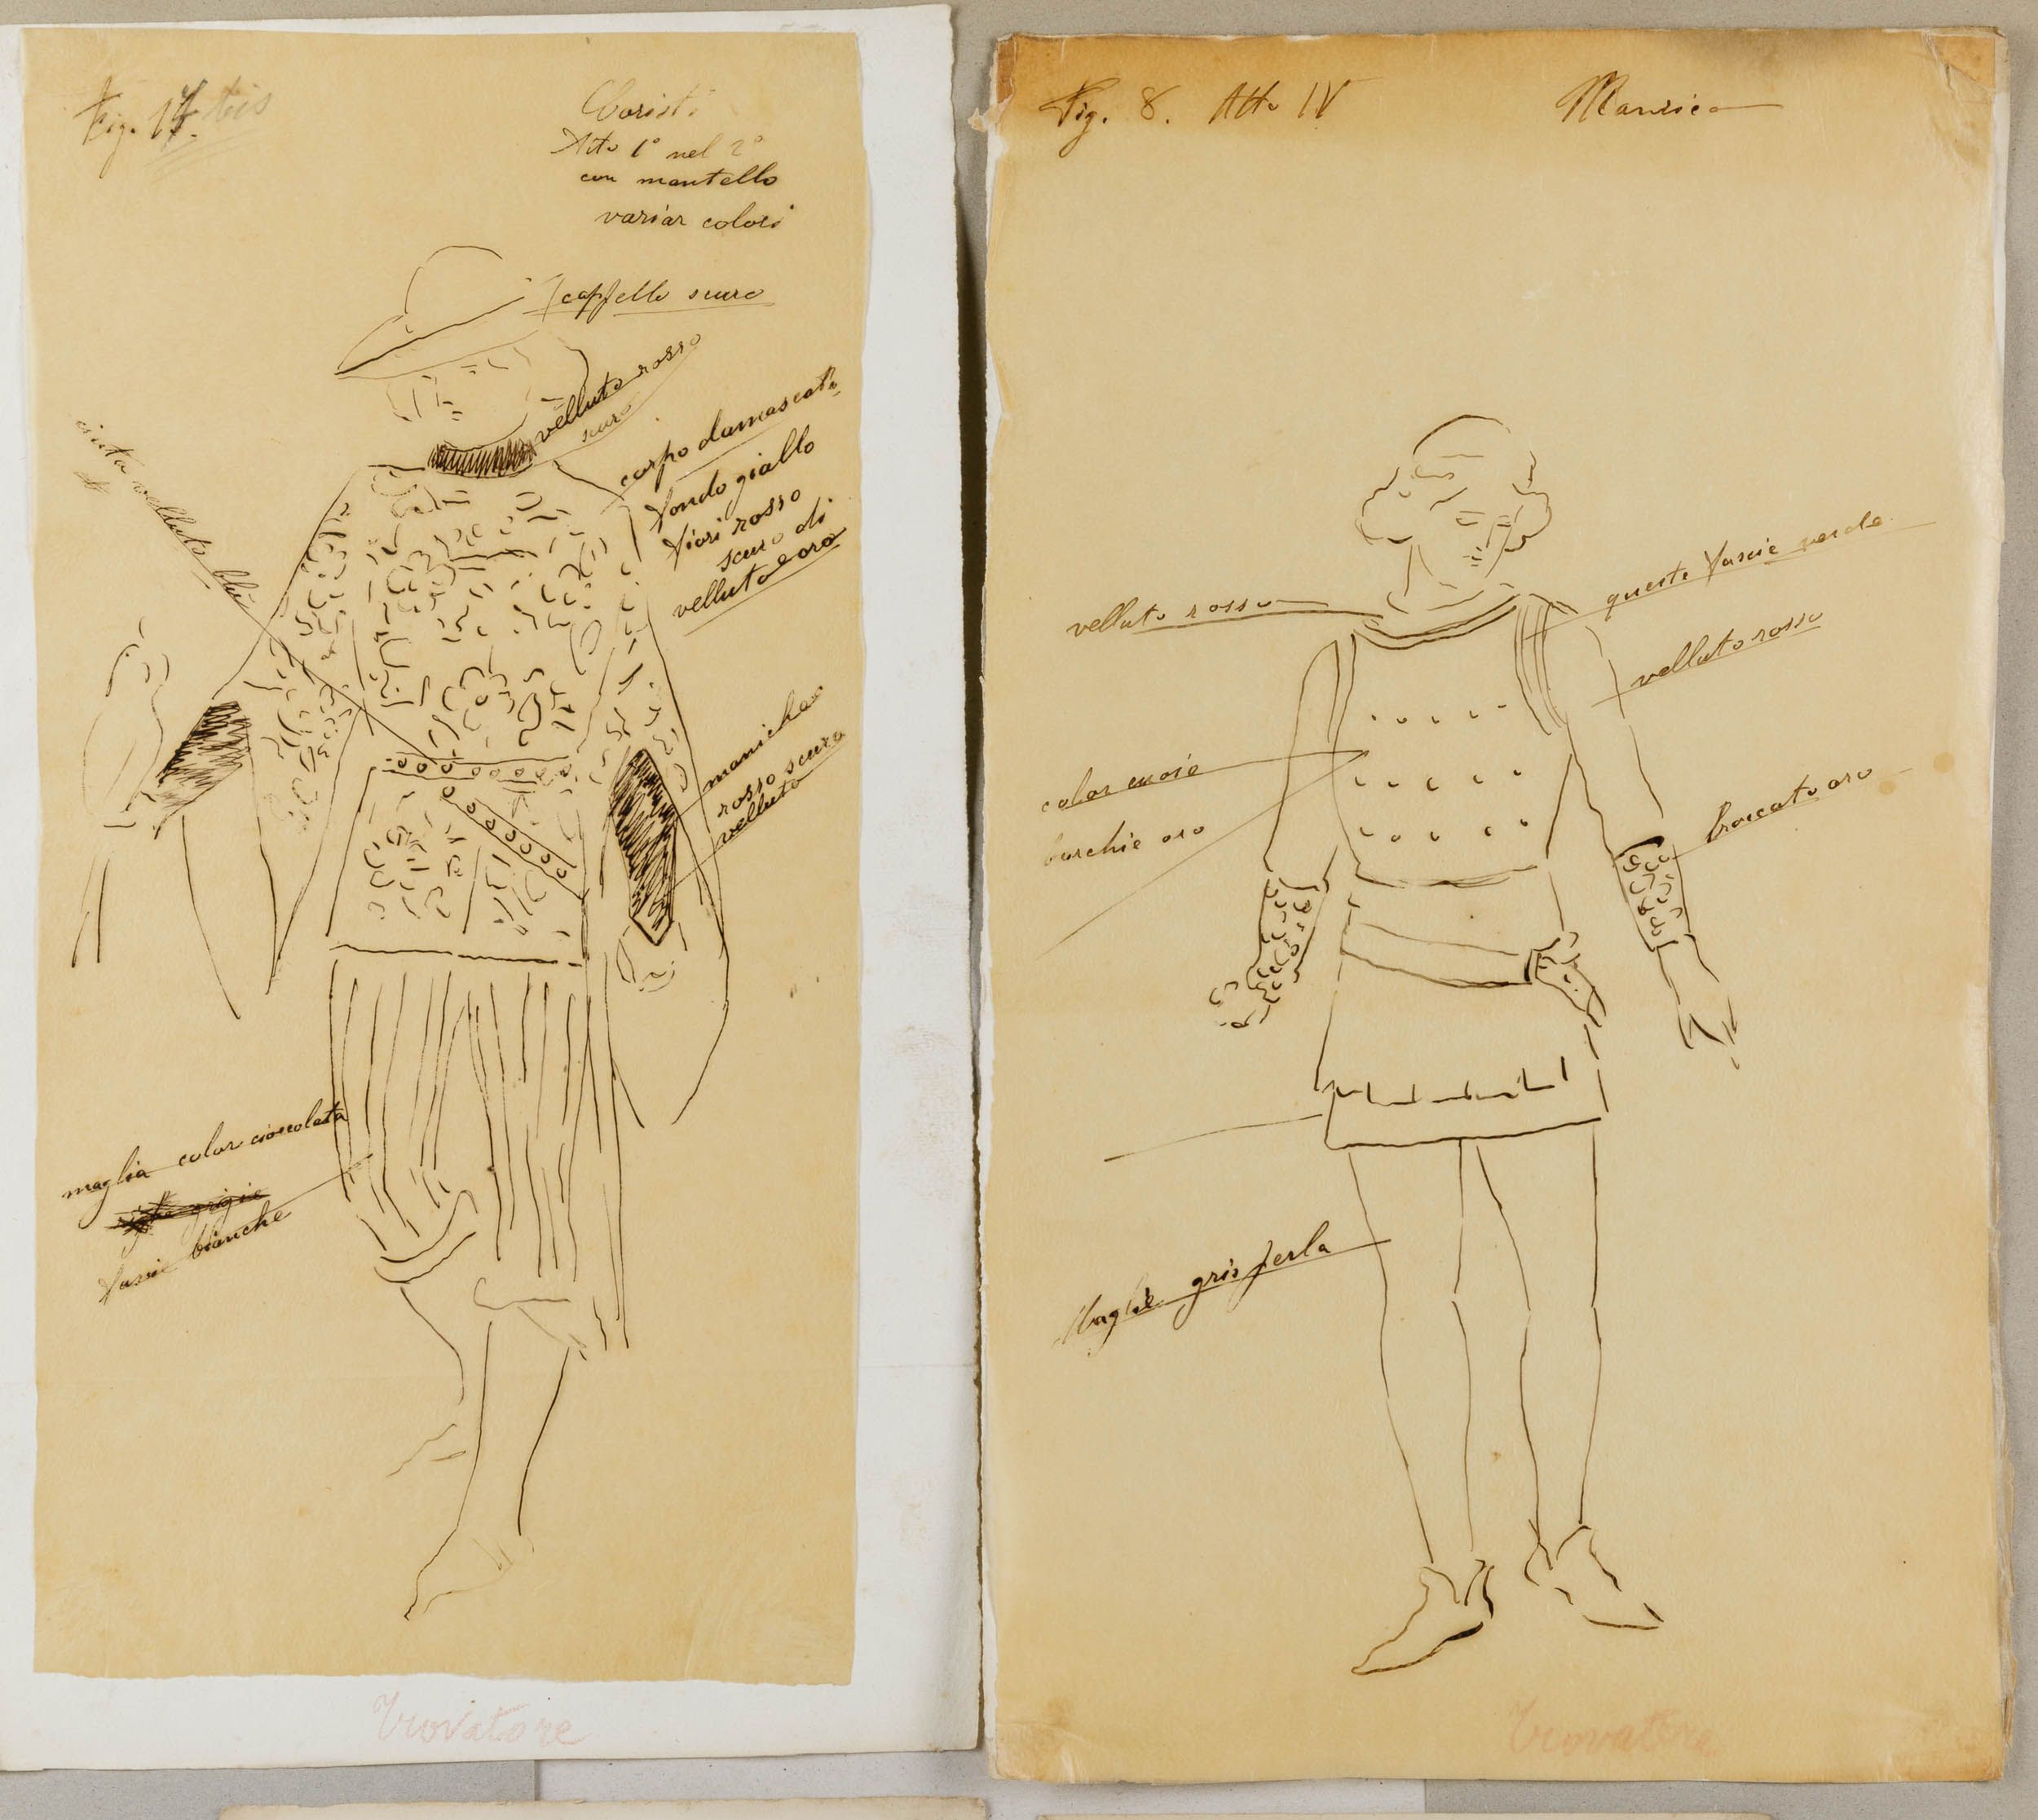 Fig. 17. bis
Coristi
Atto 1° nel 2°
con mantello
variar colori
cappello scuro
velluto rosso
scuro
corpo damascato
fondo giallo
fiori rosso
scuro di
velluto e oro
cinta velluto blù
maniche
rosso scuro
velluto
maglia color cioccolata
righe grigie
fascie bianche
Trovatore
Fig. 8. Atto IV
Manrico
velluto rosso
queste fascie verde
velluto rosso
color cuoio
borchie oro
broccato oro
Maglie gris perla
Trovatore